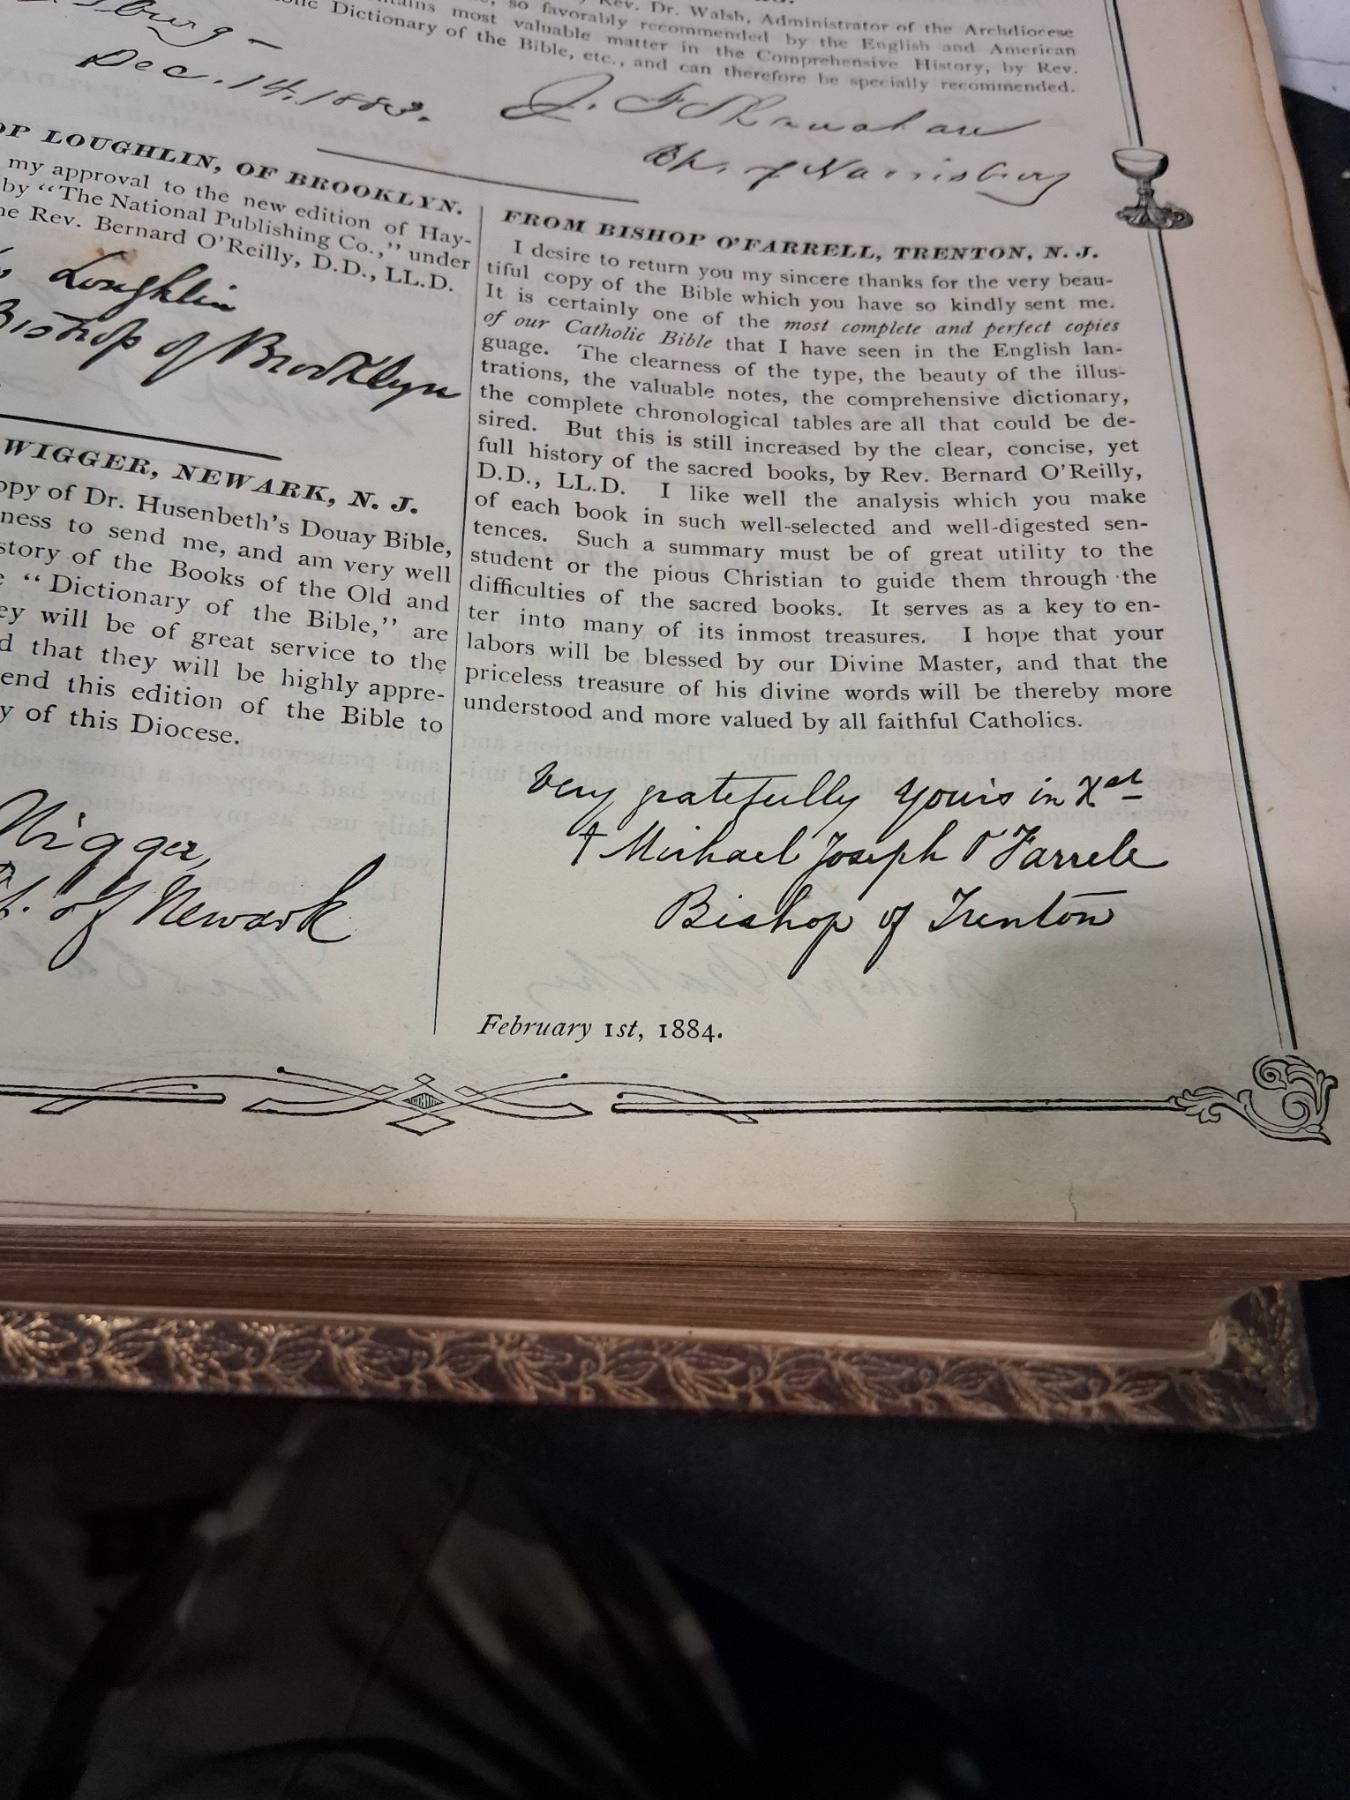 Rev. Dr. Walsh, Administrator of the Archdiocese
so favorably recommended by the English and American
most valuable matter in the Comprehensive History, by Rev.
Dictionary of the Bible, etc., and can therefore be specially recommended.
Dec. 14. 1883.
J. F. Shanahan
Bh. of Harrisburg
LOUGHLIN, OF BROOKLYN.
my approval to the new edition of Hay-
by "The National Publishing Co.," under
Rev. Bernard O'Reilly, D.D., LL.D.
Loughlin
Bishop of Brooklyn
WIGGER, NEWARK, N. J.
of Dr. Husenbeth's Douay Bible,
to send me, and am very well
of the Books of the Old and
"Dictionary of the Bible," are
will be of great service to the
that they will be highly appre-
this edition of the Bible to
of this Diocese.
Wigger,
of Newark
FROM BISHOP O'FARRELL, TRENTON, N. J.
I desire to return you my sincere thanks for the very beau-
tiful copy of the Bible which you have so kindly sent me.
It is certainly one of the most complete and perfect copies
of our Catholic Bible that I have seen in the English lan-
guage. The clearness of the type, the beauty of the illus-
trations, the valuable notes, the comprehensive dictionary,
the complete chronological tables are all that could be de-
sired. But this is still increased by the clear, concise, yet
full history of the sacred books, by Rev. Bernard O'Reilly,
D.D., LL.D. I like well the analysis which you make
of each book in such well-selected and well-digested sen-
tences. Such a summary must be of great utility to the
student or the pious Christian to guide them through the
difficulties of the sacred books. It serves as a key to en-
ter into many of its inmost treasures. I hope that your
labors will be blessed by our Divine Master, and that the
priceless treasure of his divine words will be thereby more
understood and more valued by all faithful Catholics.
Very gratefully yours in Xst
† Michael Joseph O'Farrell
Bishop of Trenton
February 1st, 1884.